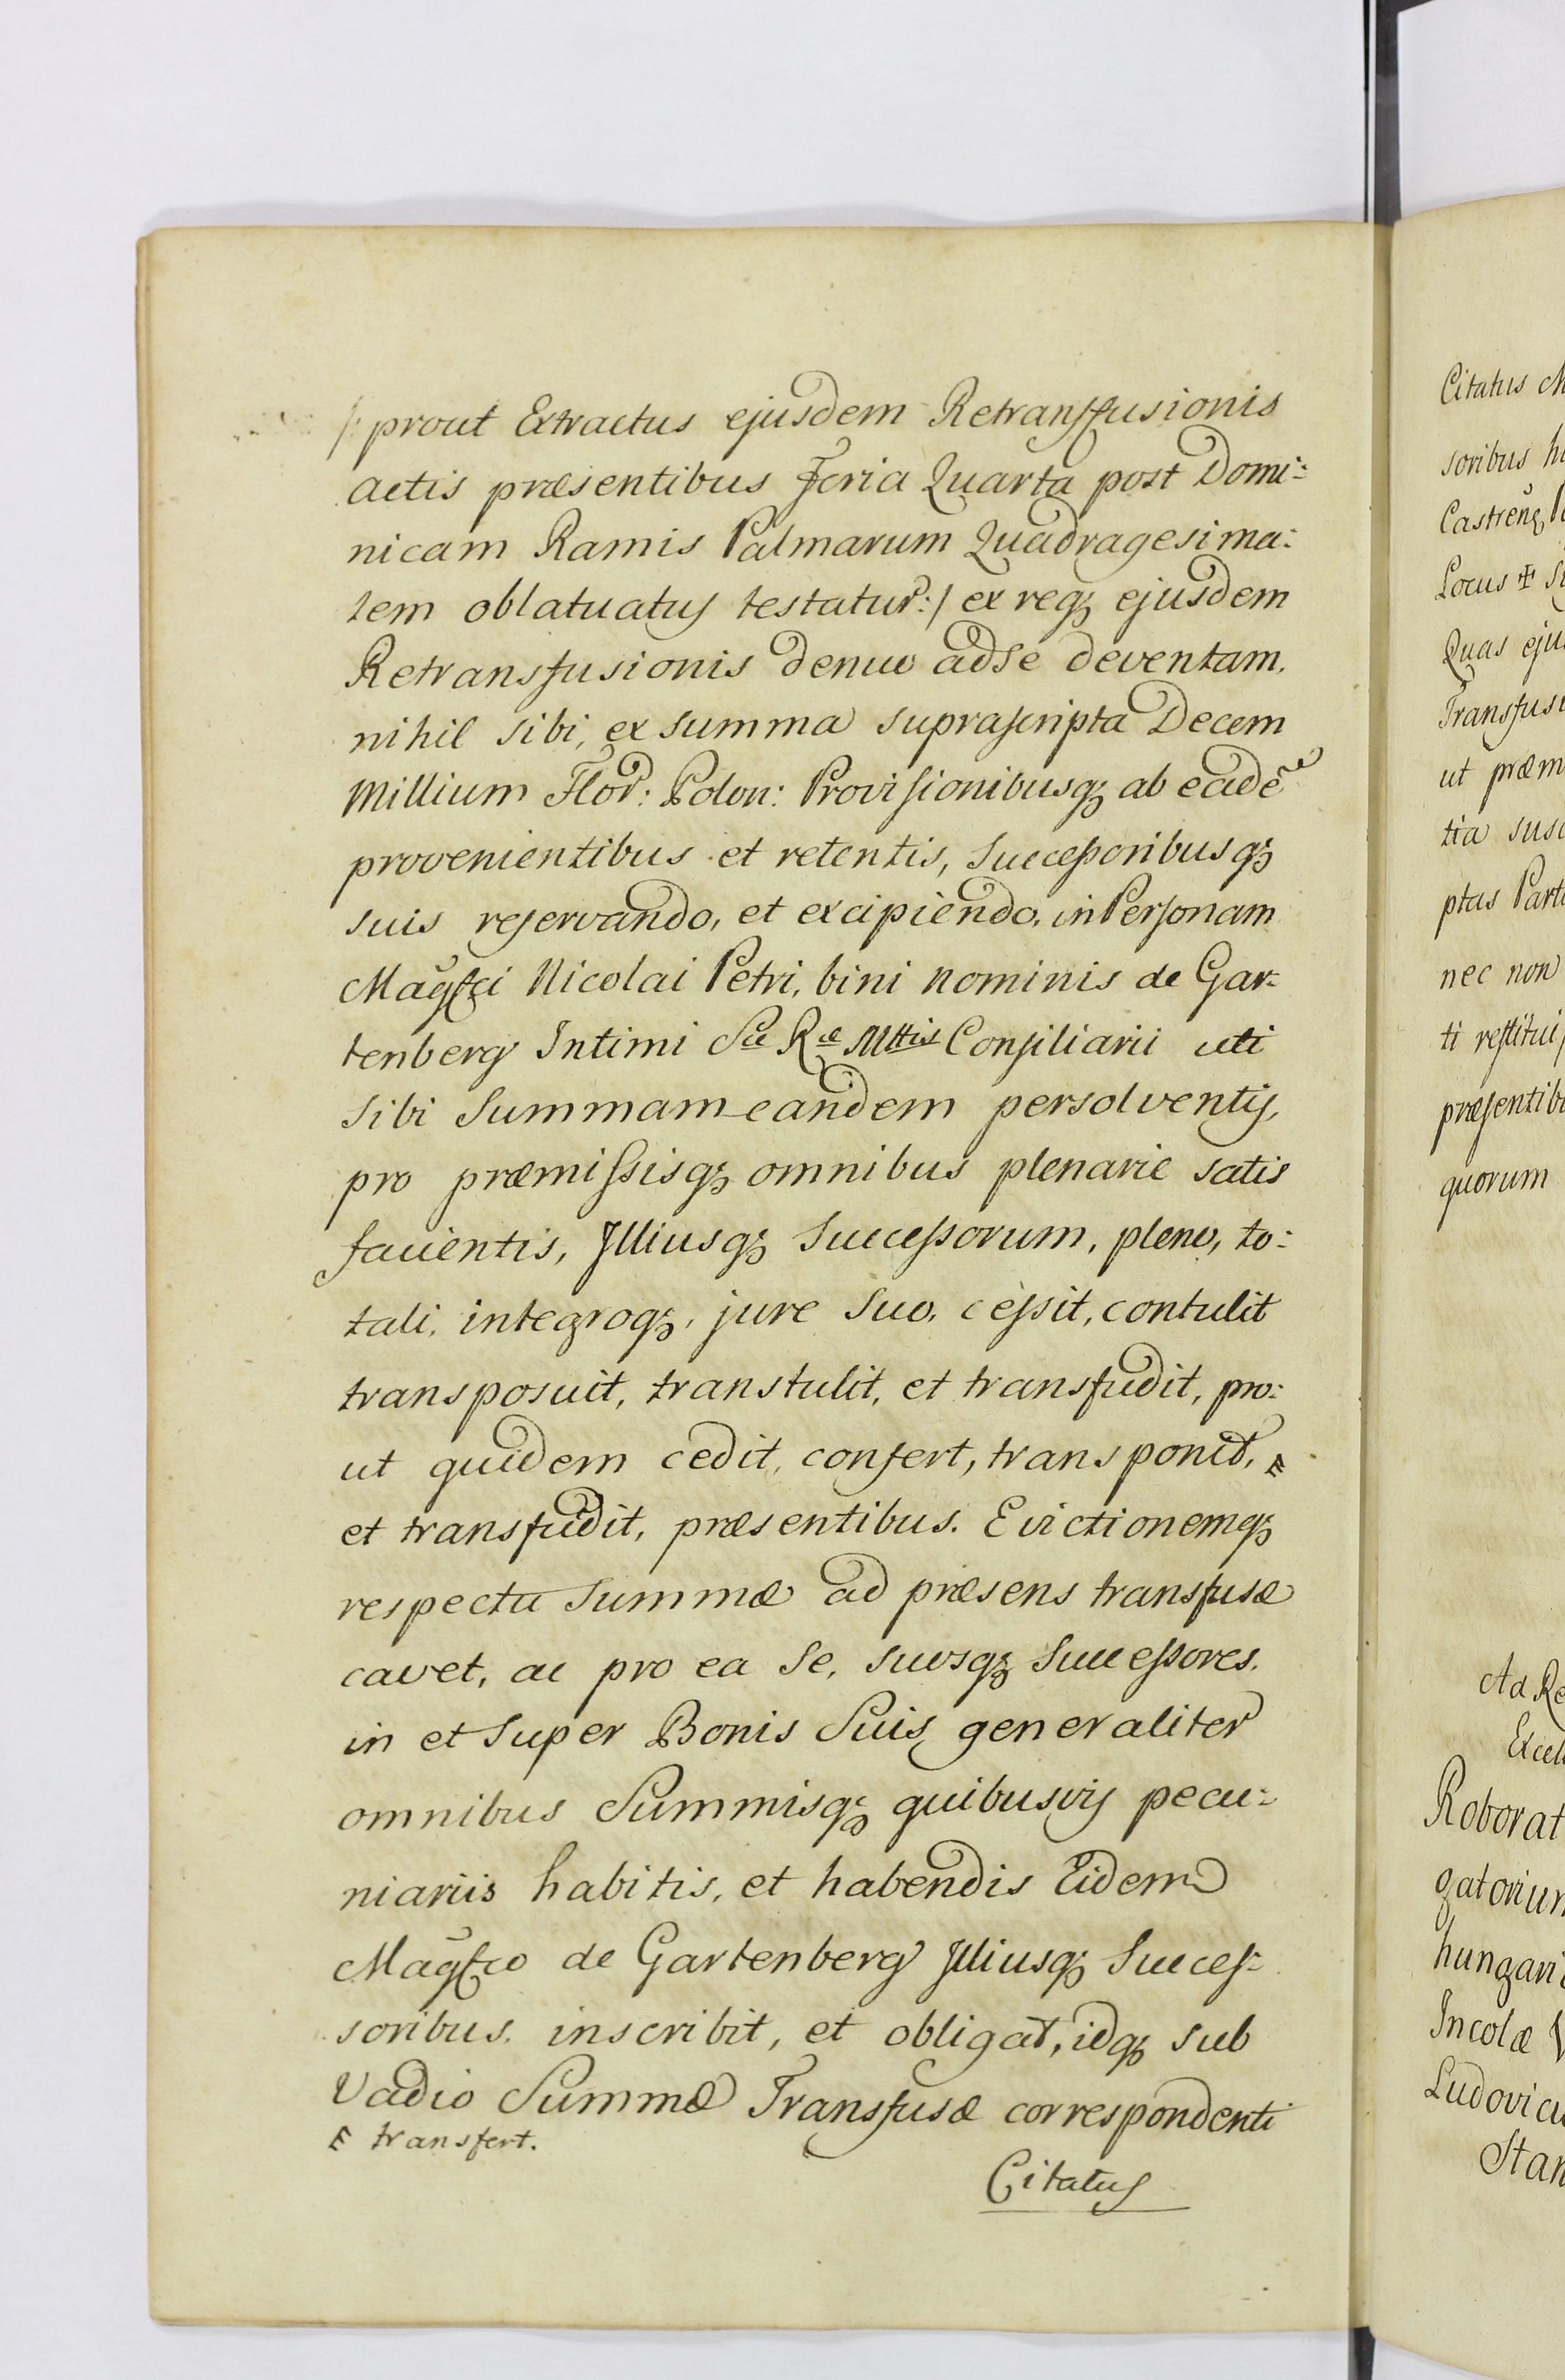 /: prout Extractus ejusdem Retransfusionis
actis præsentibus Feria Quarta post Domi:
nicam Ramis Palmarum Quadragesima:
lem oblatuatus testatur :/ ex req₃ ejusdem
Retransfusionis denuo ad se deventam,
nihil sibi, ex summa suprascripta Decem
Millium Flor: Polon: Provisionibusq₃ ab eadē
provenientibus et retentis, Successoribusq₃
suis reservando, et excipiendo, in Personam
Magfci Nicolai Petri, bini nominis de Gar:
tenberg Intimi Sæ Ræ Mttis Consiliarii uti
sibi Summam eandem persolventis,
pro præmissisq₃ omnibus plenarie satis
facientis, Illiusq₃ Successorum, pleno, to:
tali, integroq₃, jure suo, cessit, contulit
transposuit, transtulit, et transfudit, pro:
ut quidem cedit, confert, transponit, F
et transfudit, præsentibus. Evictionemq₃
respectu Summæ ad præsens transfusæ
cavet, ac pro ea Se, suosq₃ Successores,
in et super Bonis Suis generaliter
omnibus Summisq₃ quibusvis pecu:
niariis habitis, et habendis Eidem
Magfco de Gartenberg Illiusq₃ Succes:
soribus, inscribit, et obligat, idq₃ sub
Vadio Summæ Transfusæ correspondenti
F transfert.
Citatus
Citatus
soribus
Castrens
Locus ✠
Quas
Transfusi
ut præm
tia susc
ptas Part
nec non
ti restitui
præsentib
quorum
Ad Re
Excell
Roborat
gatorium
hungari
Incolæ
Ludovicu
Stan